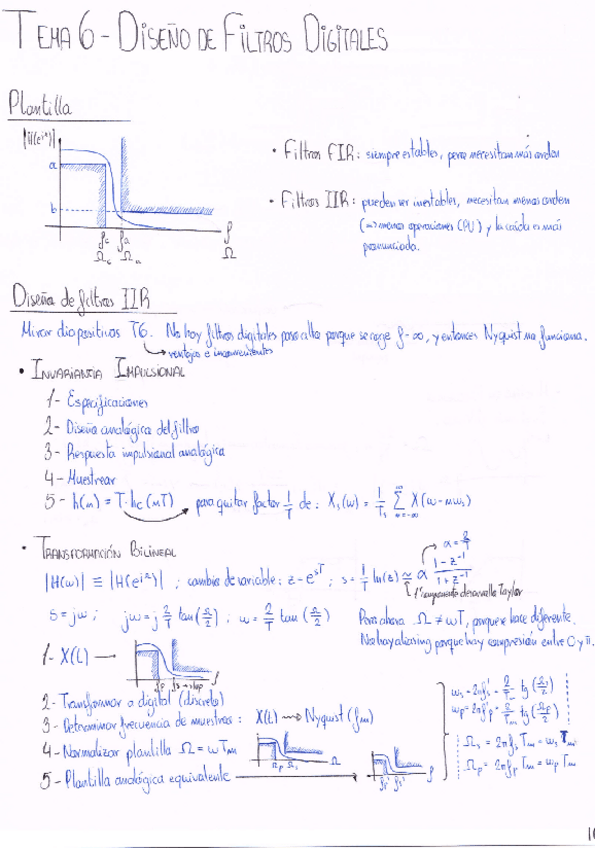 TEMA 6 - DISEÑO DE FILTROS DIGITALES
Plantilla
|H(e^jΩ)|
a
b
fc fa f
Ωc Ωa Ω
• Filtros FIR: siempre estables, pero necesitan más orden
• Filtros IIR: pueden ser inestables, necesitan menos orden
(=> menos operaciones CPU) y la caída es más
pronunciada.
Diseño de filtros IIR
Mirar diapositivas T6. No hay filtros digitales paso alto porque se coge f→∞, y entonces Nyquist no funciona.
↳ ventajas e inconvenientes
• INVARIANTIA IMPULSIONAL
1- Especificaciones
2- Diseño analógico del filtro
3- Respuesta impulsional analógica
4- Muestrear
5- h(n) = T·hc(nT) para quitar factor 1/T de: Xs(ω) = 1/Ts Σ X(ω-nωs)
n=-∞ ∞
• TRANSFORMACIÓN BILINEAL
α = 2/T
|H(ω)| ≡ |H(e^jΩ)| ; cambio de variable: z = e^sT ; s = 1/T ln(z) ≅ α (1-z^-1)/(1+z^-1)
1ª componente desarrollo Taylor
s = jω ; jω = j 2/T tan(Ω/2) ; ω = 2/T tan(Ω/2)
Pero ahora Ω ≠ ωT, porque se hace diferente.
No hay aliasing porque hay compresión entre 0 y π.
1- X(t) →
fp fs → stop f
2- Transformar a digital (discreto)
3- Determinar frecuencia de muestreo: X(t) → Nyquist (fm)
4- Normalizar plantilla Ω = ωTm
Ωp Ωs Ω
5- Plantilla analógica equivalente →
fp' fs' f
ωs' = 2πfs' = 2/Tm tg(Ωs/2)
ωp' = 2πfp' = 2/Tm tg(Ωp/2)
Ωs = 2πfsTm = ωsTm
Ωp = 2πfpTm = ωpTm